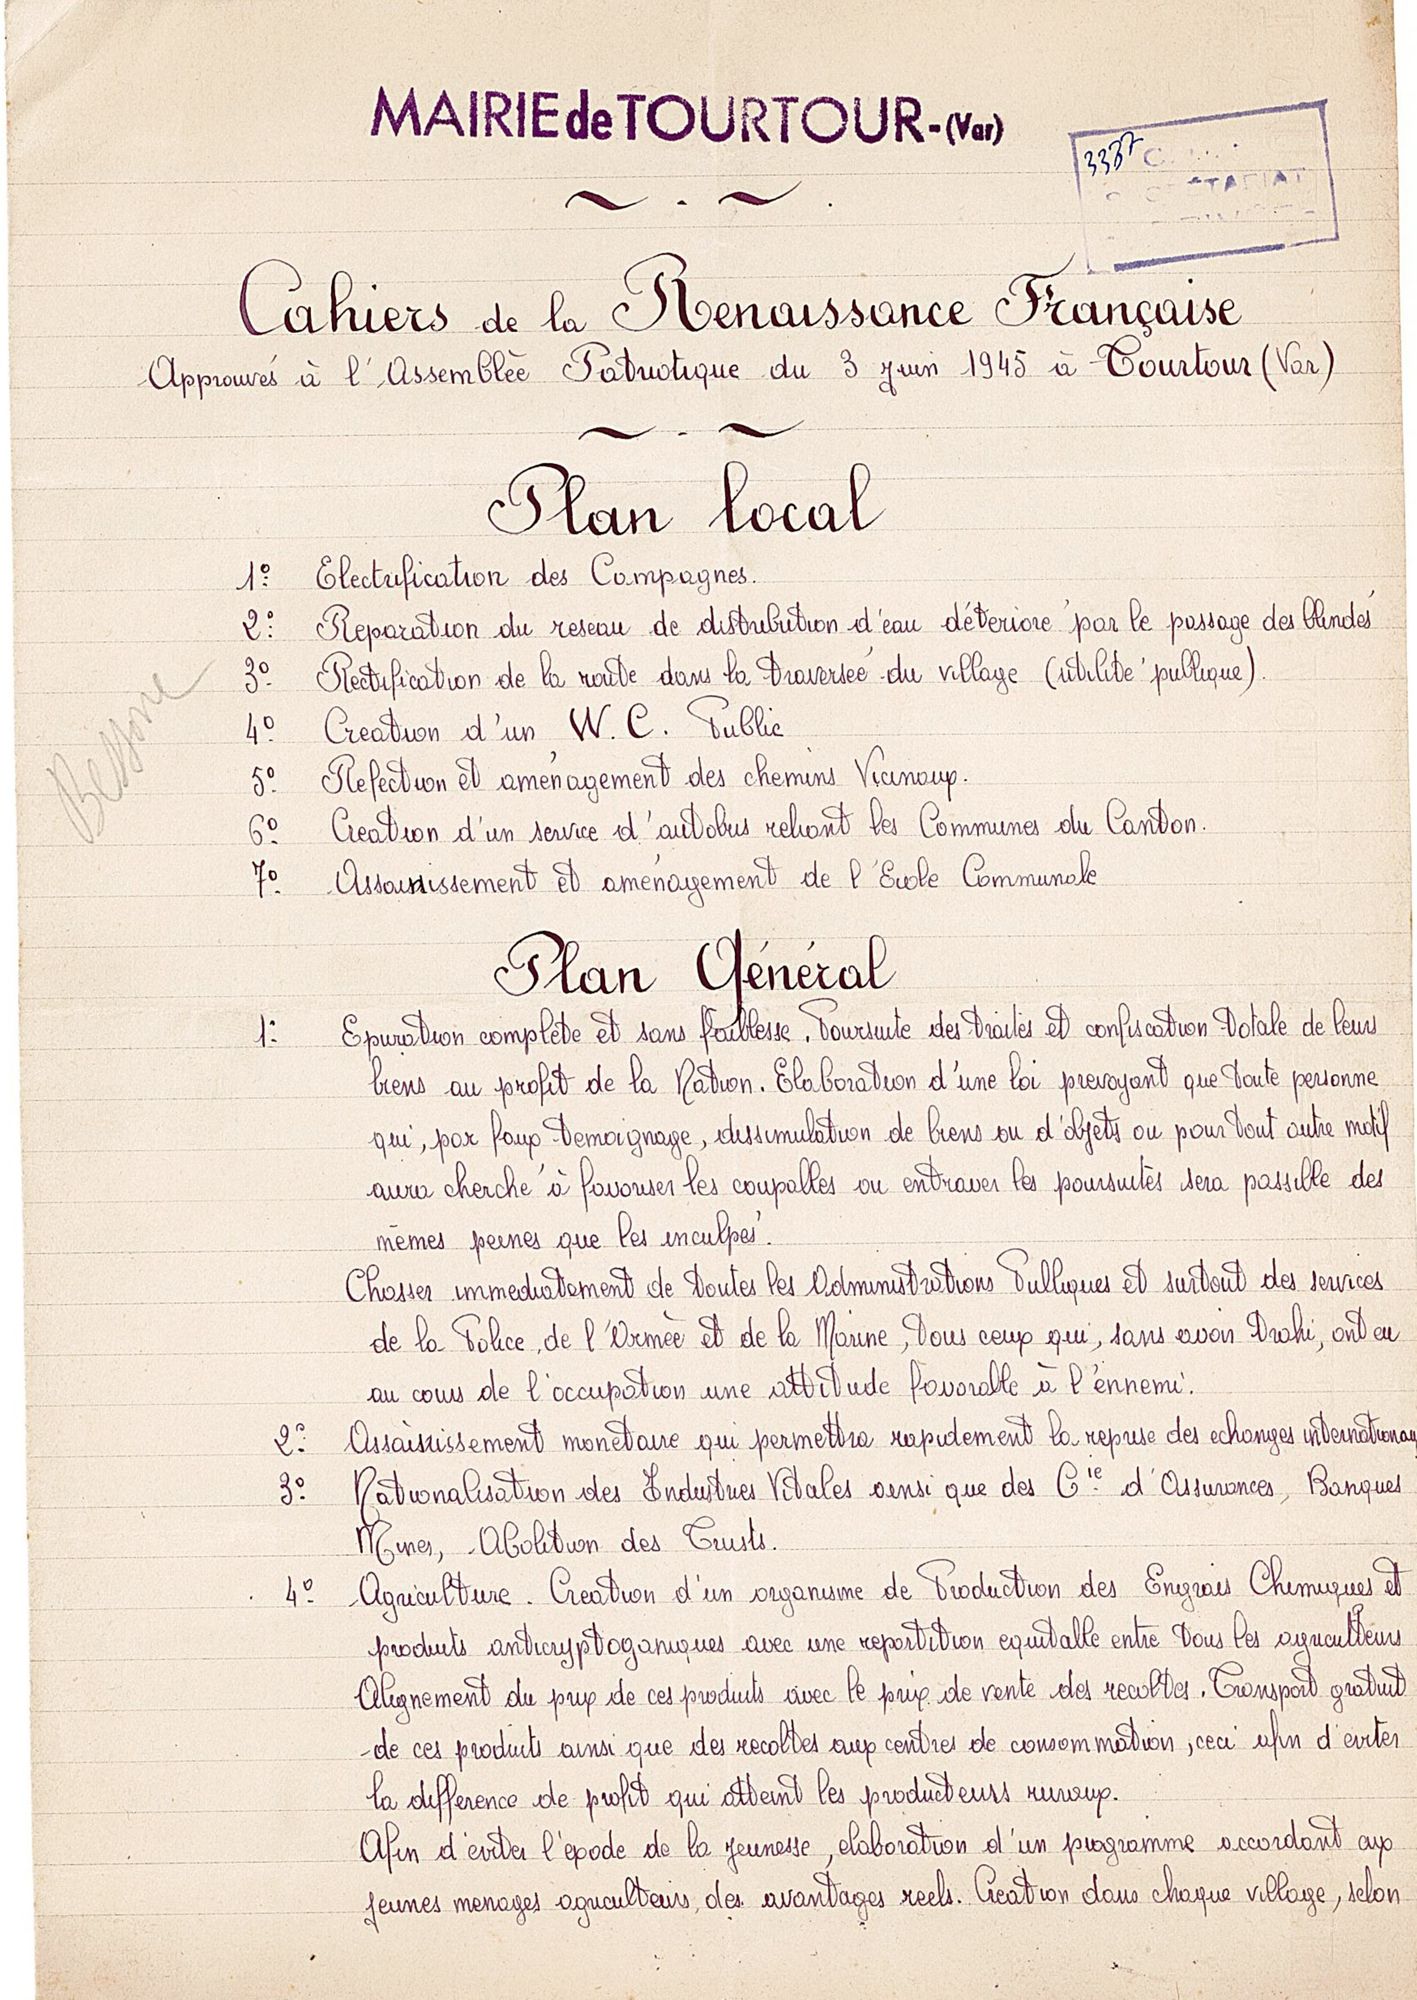 MAIRIE de TOURTOUR-(Var)
3387
Cahiers de la Renaissance Française
Approuvés à l'Assemblée Patriotique du 3 juin 1945 à Tourtour (Var)
Plan local
1º Electrification des Campagnes.
2º Reparation du reseau de distribution d'eau déterioré par le passage des blindés
3º Rectification de la route dans la traversée du village (utilité publique).
4º Creation d'un W.C. Public
5º Refection et aménagement des chemins Vicinaux.
6º Creation d'un service d'autobus reliant les Communes du Canton.
7º Assainissement et aménagement de l'Ecole Communale
Bessone
Plan Général
1º Epuration complète et sans faiblesse. Poursuite des traités et confiscation totale de leurs
biens au profit de la Nation. Elaboration d'une loi prevoyant que toute personne
qui, par faux temoignage, dissimulation de biens ou d'objets ou pour tout autre motif
aura cherché à favoriser les coupables ou entraver les poursuites sera passible des
mêmes peines que les inculpés.
Chasser immediatement de toutes les Administrations Publiques et surtout des services
de la Police, de l'Armée et de la Marine, tous ceux qui, sans avoir trahi, ont eu
au cours de l'occupation une attitude favorable à l'ennemi.
2º Assainissement monetaire qui permettra rapidement la reprise des echanges internationaux
3º Nationalisation des Industries Vitales ainsi que des Cie d'Assurances, Banques
Mines, Abolition des Trusts.
4º Agriculture. Creation d'un organisme de Production des Engrais Chimiques et
produits anticryptoganiques avec une repartition equitable entre tous les agriculteurs
Alignement du prix de ces produits avec le prix de vente des recoltes. Transport gratuit
de ces produits ainsi que des recoltes aux centres de consommation, ceci afin d'eviter
la difference de profit qui atteint les producteurs ruraux.
Afin d'eviter l'éxode de la jeunesse, elaboration d'un programme accordant aux
jeunes menages agriculteurs, des avantages reels. Creation dans chaque village, selon